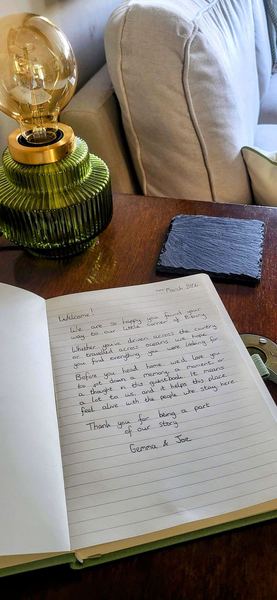 March 2026
Welcome!
We are so happy you found your
way to our little corner of
Whether you've driven across the country
or travelled across oceans we hope
you find everything you were looking for
Before you head home we'd love you
to jot down a memory, a moment or
a thought in this guestbook. It means
a lot to us, and it helps this place
feel alive with the people who stay here.
Thank you for being a part
of our story
Gemma & Joe